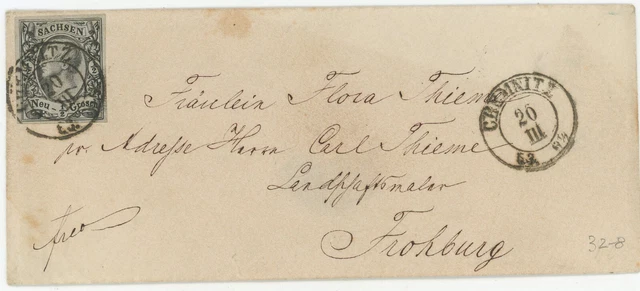 SACHSEN
Neu-½-Grosch
Fräulein Flora Thieme
pr. Adresse Herrn Carl Thieme
Landschaftsmaler
Frohburg
CHEMNITZ
20
III
53
32-8